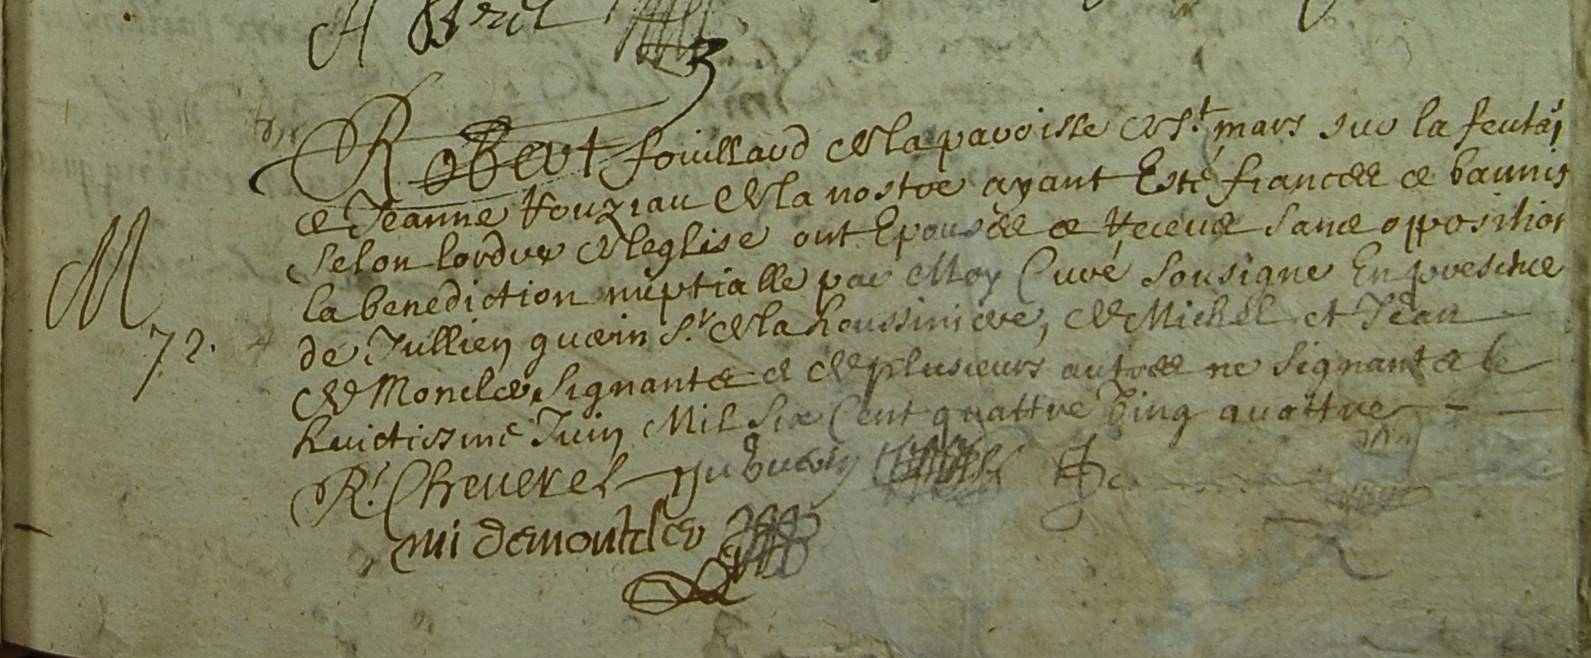 A Bréil
Robert fouillard de la paroisse de St mars sur la feutai
et Jeanne Rouziau de la nostre ayant Esté fiancées et bannis
selon lordre de leglise ont Epousée et Receue sans opposition
la benediction nuptialle par Moy Curé sousigne En presence
de Jullien guerin Sr de la houssiniere, de Michel et Jean
M
72.
de Moncler signants et de plusieurs autres ne signants le
huictiesme Juin Mil Six Cent quattre Ving quattre
Rt Cheverel Ju guerin
mi demontcler